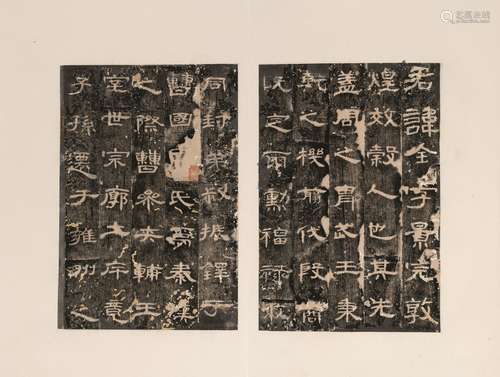 君諱全字景完敦
煌效穀人也其先
蓋周之胄武王秉
乾之機翦伐殷商
既定爾勳福祿攸
同封弟叔振鐸于
曹國因氏焉秦漢
之際曹參夾輔王
室世宗廓土斥竟
子孫遷于雍州之